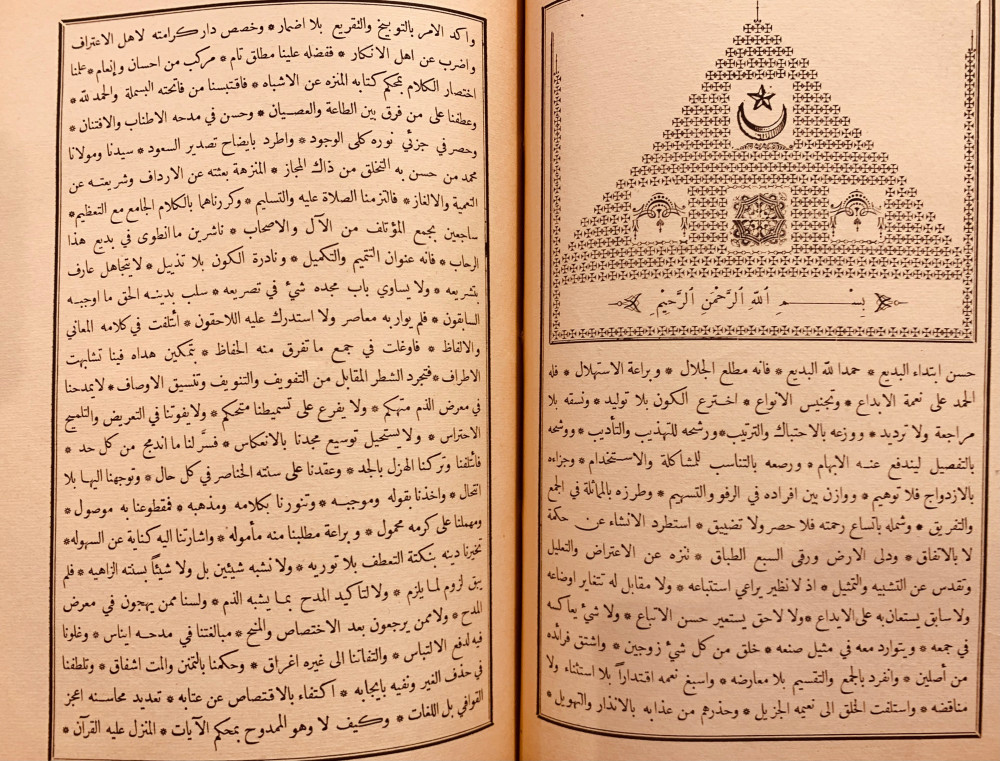 بِسْمِ اللهِ الرَّحْمٰنِ الرَّحِيْمِ
حسن ابتداء البديع * حمدا لله البديع * فانه مطلع الجلال * وبراعة الاستهلال * فله
الحمد على نعمة الابداع * وتجنيس الانواع * اخترع الكون بلا توليد * ونسقه بلا
مراجعة ولا ترديد * ووزعه بالاحتباك والترتيب * ورشحه للتهذيب والتأديب * ووشحه
بالتفصيل ليندفع عنه الابهام * ورصعه بالتناسب للمشاكلة والاستخدام * وجزاءه
بالازدواج فلا توهيم * ووازن بين افراده في الرفو والتسهيم * وطرزه بالماثلة في الجمع
والتفريق * وشمله باتساع رحمته فلا حصر ولا تضييق * استطرد الانشاء عن حكمة
لا بالاتفاق * ودلى الارض ورقى السبع الطباق * تنزه عن الاعتراض والتعليل
وتقدس عن التشبيه والتمثيل * اذ لا نظير يراعي استتباعه * ولا مقابل له تتغاير اوضاعه
ولا سابق يستعان به على الايداع * ولا لاحق يستعير حسن الاتباع * ولا شيء يعاكسه
في جمعه * ويتوارد معه في مثيل صنعه * خلق من كل شيء زوجين * واشتق فرائده
من أصلين * وانفرد بالجمع والتقسيم بلا معارضه * واسبغ نعمه اقتداراً بلا استثناء ولا
مناقضه * واستلفت الخلق الى نعيمه الجزيل * وحذرهم من عذابه بالانذار والتهويل *
واكد الامر بالتوبيخ والتقريع بلا اضمار * وخصص دار كرامته لاهل الاعتراف
واضرب عن اهل الانكار * ففضله علينا مطلق تام * مركب من احسان وإنعام * علمنا
اختصار الكلام بمحكم كتابه المنزه عن الاشباه * فاقتبسنا من فاتحته البسملة والحمد لله *
وعطفنا على من فرق بين الطاعة والعصيان * وحسن في مدحه الاطناب والافتنان *
وحصر في جزئي نوره كلى الوجود * واطرد بايضاح تصدير السعود * سيدنا ومولانا
محمد من حسن به التخلق من ذاك المجاز * المنزهة بعثته عن الارداف وشريعته عن
التعمية والالغاز * فالتزمنا الصلاة عليه والتسليم * وكررناهما بالكلام الجامع مع التعظيم *
ساجعين بجمع المؤتلف من الآل والاصحاب * ناشرين ما انطوى في بديع هذا
الرحاب * فانه عنوان التتميم والتكميل * ونادرة الكون بلا تذييل * لا يتجاهل عارف
بتشريعه * ولا يساوي باب مجده شيء في تصريعه * سلب بدينه الحق ما اوجبه
السابقون * فلم يواربه معاصر ولا استدرك عليه اللاحقون * ائتلفت في كلامه المعاني
والالفاظ * فاوغلت في جمع ما تفرق منه الحفاظ * بتمكين هداه فينا تشابهت
الاطراف * فتجرد الشطر المقابل من التفويف والتنويف وتنسيق الاوصاف * لا يمدحنا
في معرض الذم متهكم * ولا يفرع على تسميطنا متحكم * ولا يفوتنا في التعريض والتلميح
الاحتراس * ولا يستحيل توسيع مجدنا بالانعكاس * فسّر لنا ما اندمج من كل حد *
فائتلفنا وتركنا الهزل بالجد * وعقدنا على سنته الخناصر في كل حال * وتوجهنا اليها بلا
انتحال * واخذنا بقوله وموجبه * وتنورنا بكلامه ومذهبه * فمقطوعنا به موصول *
ومهملنا على كرمه محمول * وبراعة مطلبنا منه مأموله * واشارتنا اليه كناية عن السهوله *
تخيرنا دينه بنكتة التعطف بلا توريه * ولا نشبه شيئين بل ولا شيئاً بسنته الزاهيه * فلم
يبق لزوم لما يلزم * ولا لتأكيد المدح بما يشبه الذم * ولسنا ممن يهجون في معرض
المدح * ولا ممن يرجعون بعد الاختصاص والمنح * مبالغتنا في مدحه ايناس * وغلونا
فيه لدفع الالتباس * والتفاتنا الى غيره اغراق * وحكمنا بالتمني والمت اشفاق * وتلطفنا
في حذف الغير ونفيه بايجابه * اكتفاء بالاقتصاص عن عتابه * تعديد محاسنه اعجز
القوافي بل اللغات * وكيف لا وهو الممدوح بمحكم الآيات * المنزل عليه القرآن *